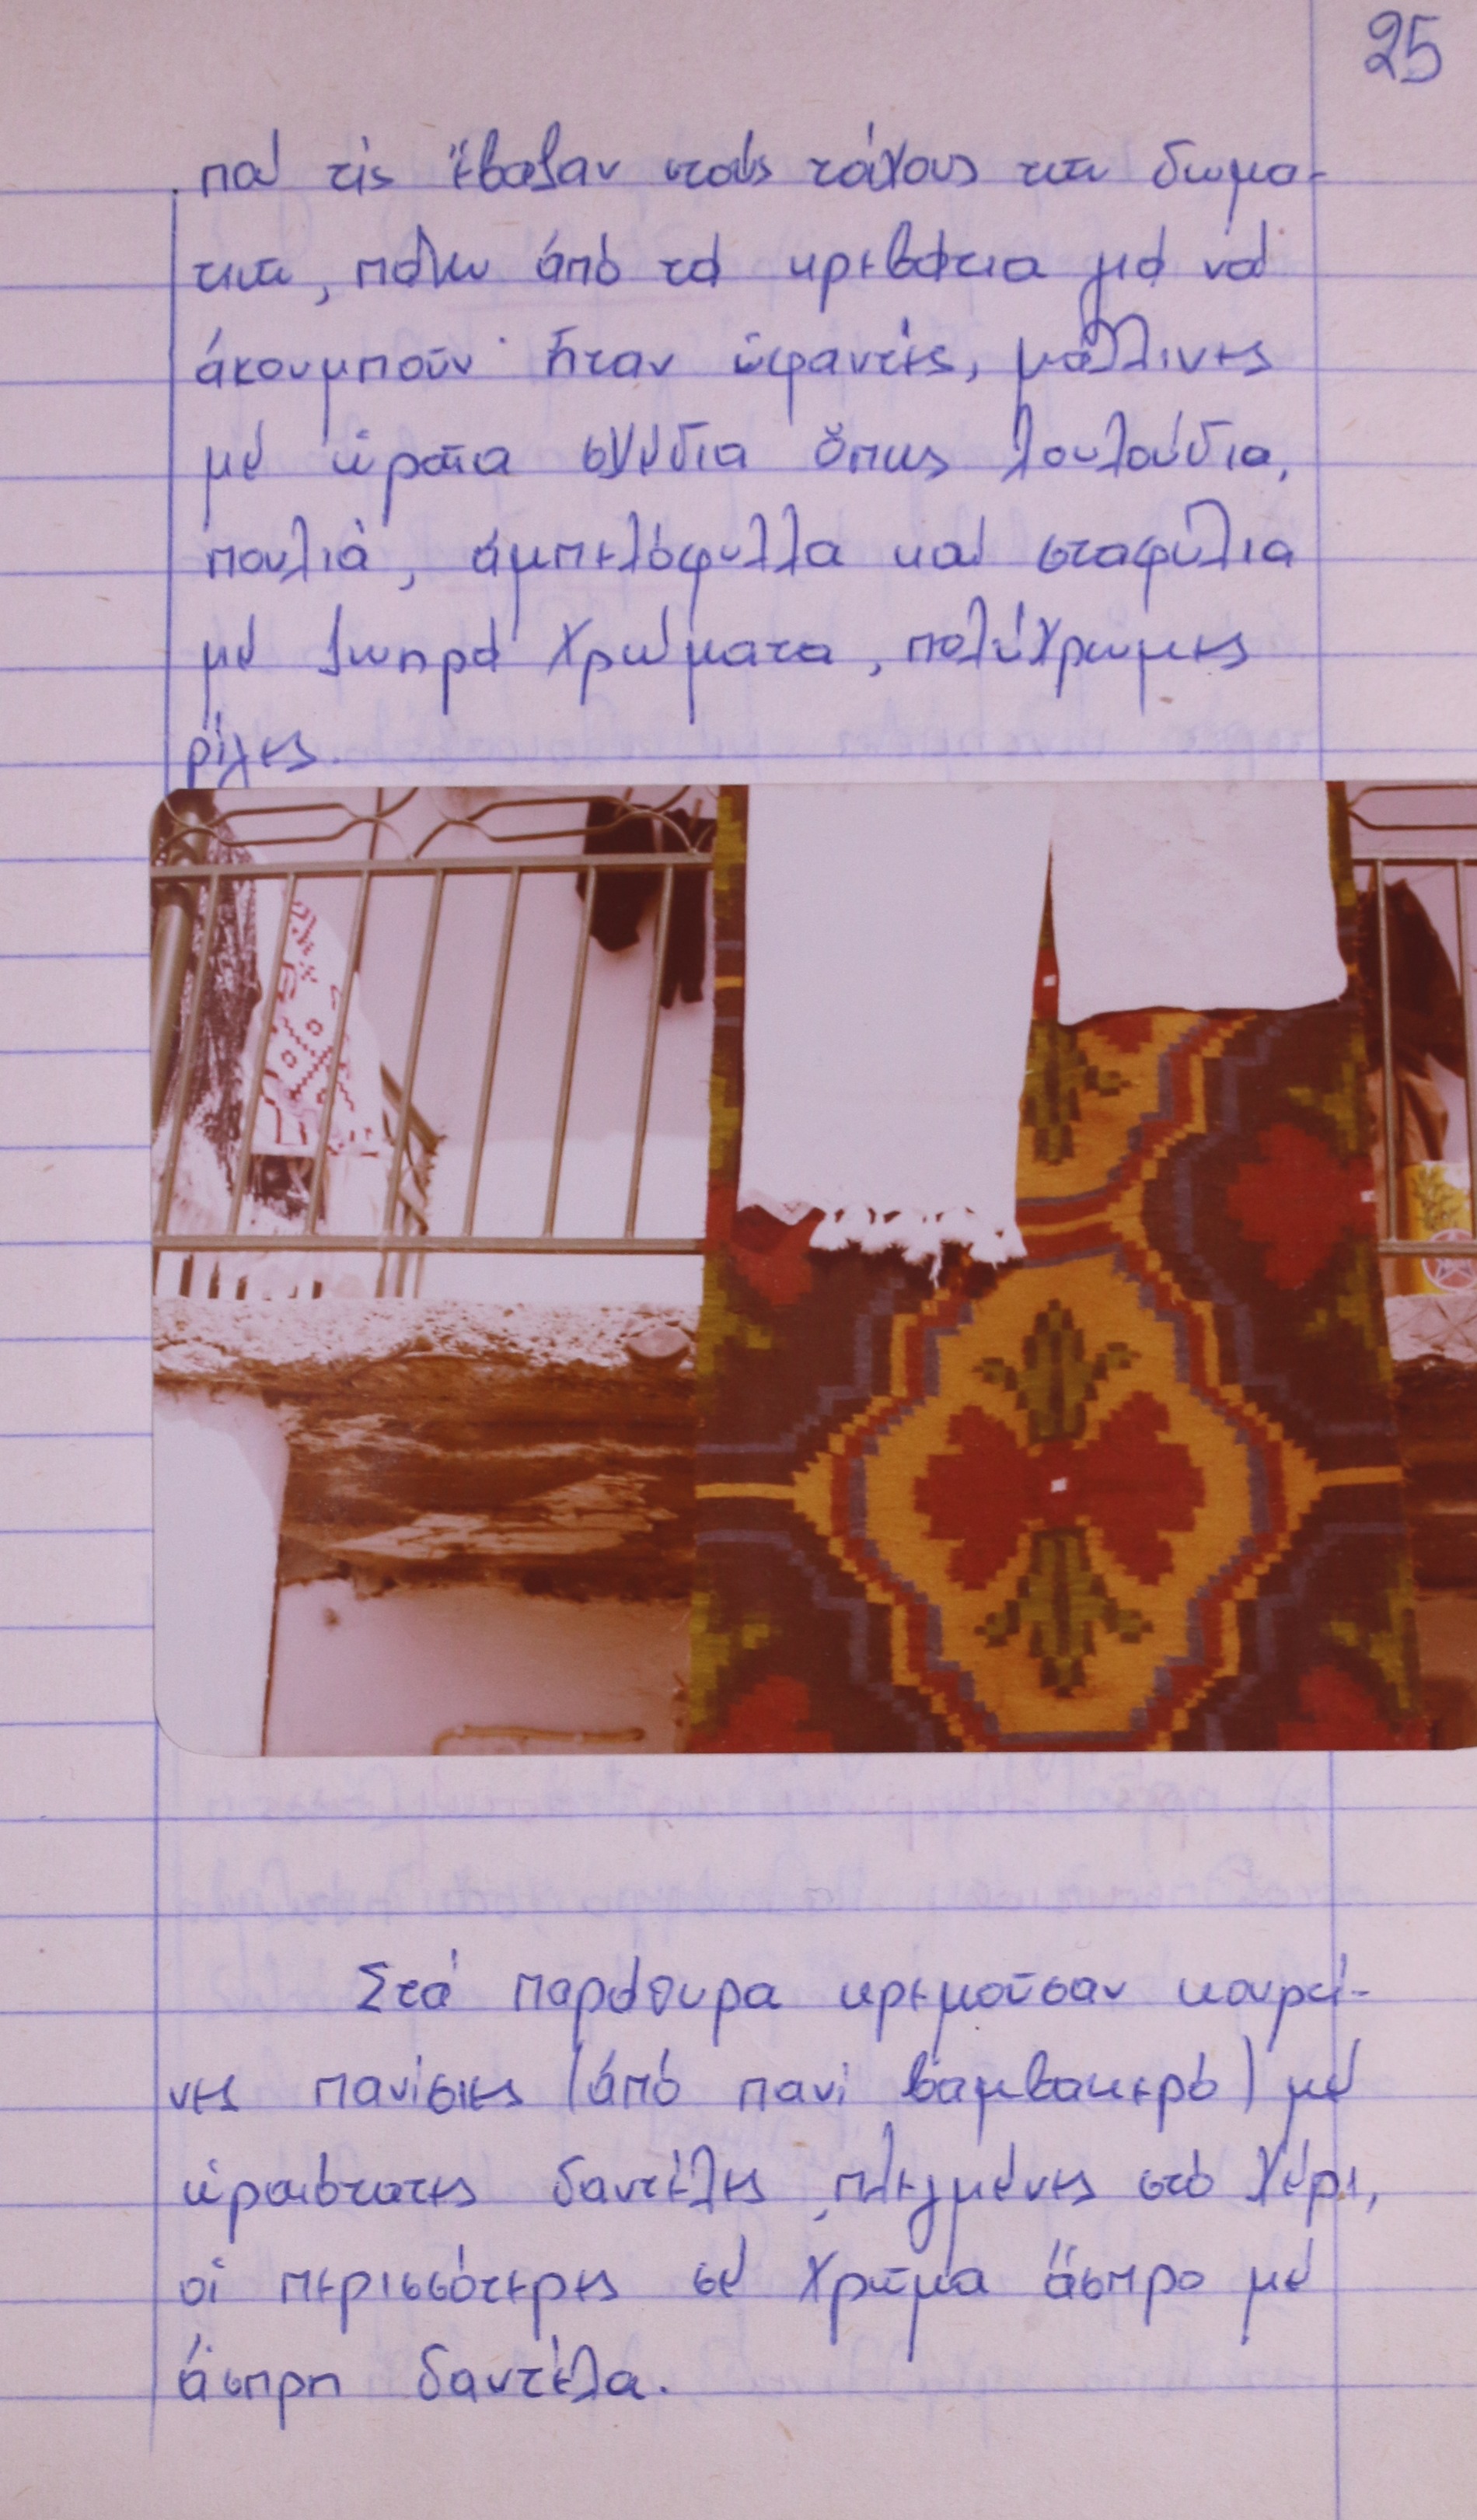 25
πού τίς ἔβαζαν στούς τοίχους τῶν δωμα-
τίων, πάνω ἀπό τά κρεβάτια γιά νά
ἀκουμποῦν· ἦταν ὑφαντές, μάλλινες
μέ ὡραῖα σχέδια ὅπως λουλούδια,
πουλιά, ἀμπελόφυλλα καί σταφύλια
μέ ζωηρά χρώματα, πολύχρωμες
ρίγες.
Στά παράθυρα κρεμοῦσαν κουρτί-
νες πανίσιες (ἀπό πανί βαμβακερό) μέ
ὡραιότατες δαντέλες, πλεγμένες στό χέρι,
οἱ περισσότερες σέ χρῶμα ἄσπρο μέ
ἄσπρη δαντέλα.